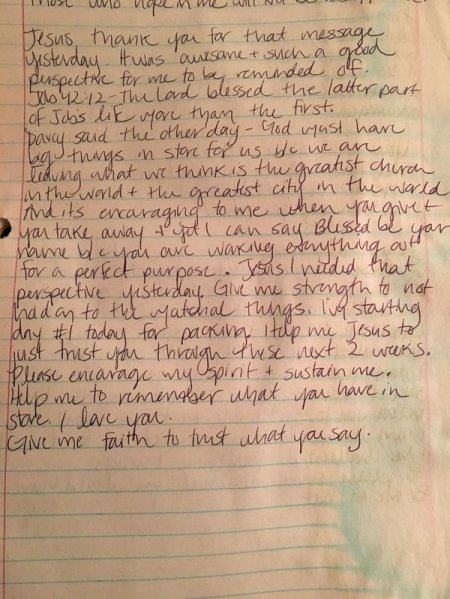 Those who hope in me will not be
Jesus thank you for that message
yesterday. It was awesome + such a good
perspective for me to be reminded of.
Job 42:12 - The Lord blessed the latter part
of Job's life more than the first.
Darcy said the other day - God must have
big things in store for us b/c we are
leaving what we think is the greatest church
in the world + the greatest city in the world
And it's encouraging to me when you give +
you take away + yet I can say Blessed be your
name b/c you are working everything out
for a perfect purpose. Jesus I needed that
perspective yesterday. Give me strength to not
hold on to the material things. I'm starting
day #1 today for packing. Help me Jesus to
just trust you through these next 2 weeks.
Please encourage my spirit + sustain me.
Help me to remember what you have in
store. I love you.
Give me faith to trust what you say.